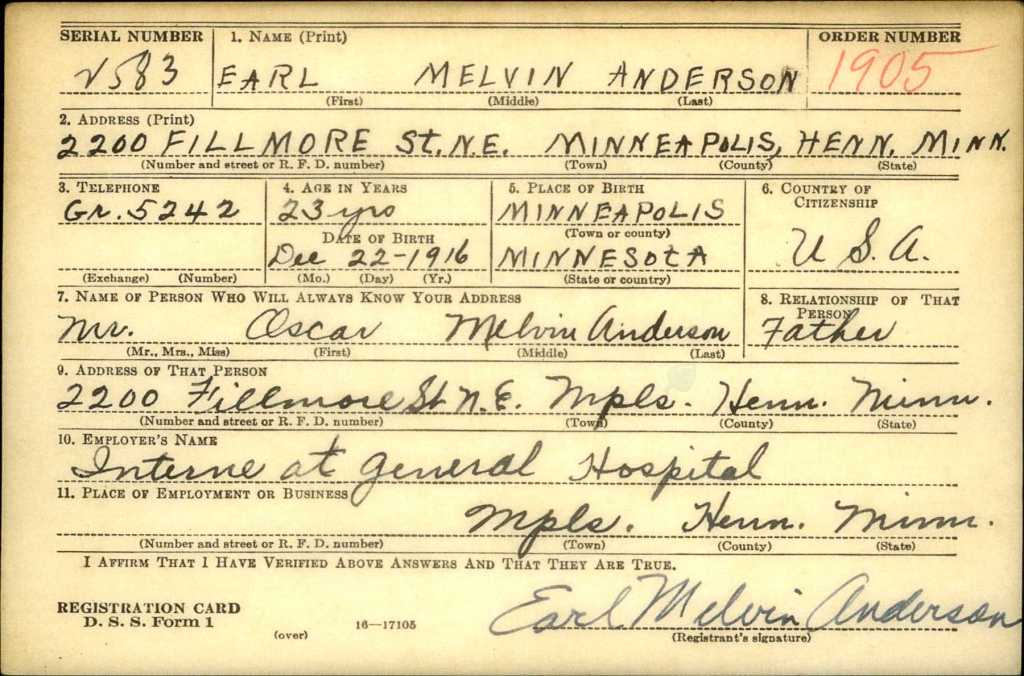 SERIAL NUMBER 1. NAME (Print) ORDER NUMBER
583 EARL MELVIN ANDERSON 1905
(First) (Middle) (Last)
2. ADDRESS (Print)
2200 FILLMORE ST. N.E. MINNEAPOLIS, HENN. MINN.
(Number and street or R. F. D. number) (Town) (County) (State)
3. TELEPHONE 4. AGE IN YEARS 5. PLACE OF BIRTH 6. COUNTRY OF CITIZENSHIP
Gr. 5242 23 yrs MINNEAPOLIS
DATE OF BIRTH (Town or county)
Dec 22-1916 MINNESOTA U.S.A.
(Exchange) (Number) (Mo.) (Day) (Yr.) (State or country)
7. NAME OF PERSON WHO WILL ALWAYS KNOW YOUR ADDRESS 8. RELATIONSHIP OF THAT PERSON
Mr. Oscar Melvin Anderson Father
(Mr., Mrs., Miss) (First) (Middle) (Last)
9. ADDRESS OF THAT PERSON
2200 Fillmore St. N.E. Mpls. Henn. Minn.
(Number and street or R. F. D. number) (Town) (County) (State)
10. EMPLOYER'S NAME
Interne at General Hospital
11. PLACE OF EMPLOYMENT OR BUSINESS
Mpls. Henn. Minn.
(Number and street or R. F. D. number) (Town) (County) (State)
I AFFIRM THAT I HAVE VERIFIED ABOVE ANSWERS AND THAT THEY ARE TRUE.
REGISTRATION CARD
D. S. S. Form 1
(over) 16—17105
Earl Melvin Anderson
(Registrant's signature)